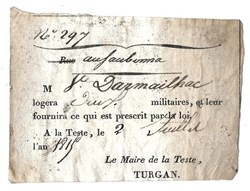 N° 297
Rue
M Ve Darmailhac
logera deux militaires, et leur
fournira ce qui est prescrit par la loi.
A la Teste, le 2 Juillet
l'an 1815
Le Maire de la Teste,
TURGAN.